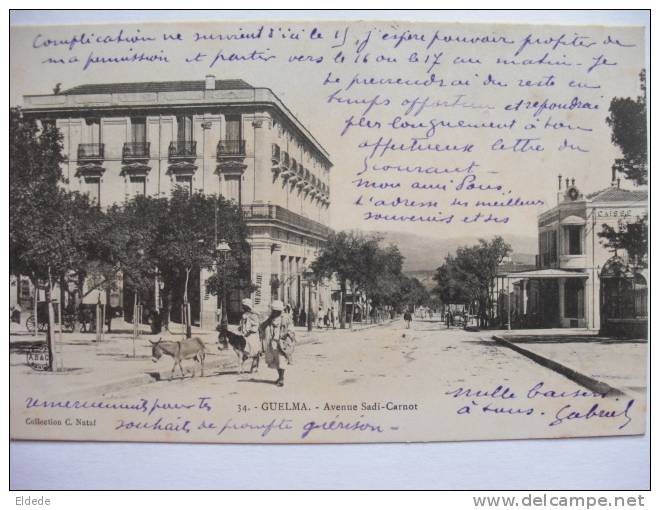 Complication ne survient d'ici le 15, j'espère pouvoir profiter de
ma permission et partir vers le 16 ou le 17 au matin - Je
te préviendrai du reste en
temps opportun et répondrai
plus longuement à ton
affectueuse lettre du
courant -
mon ami Pons
t'adresse ses meilleurs
souvenirs et ses
CAISSE
remerciements pour tes
souhaits de prompte guérison -
mille baisers
à tous. Gabriel
34. - GUELMA. - Avenue Sadi-Carnot
Collection C. Nataf
Eldede
www.delcampe.net